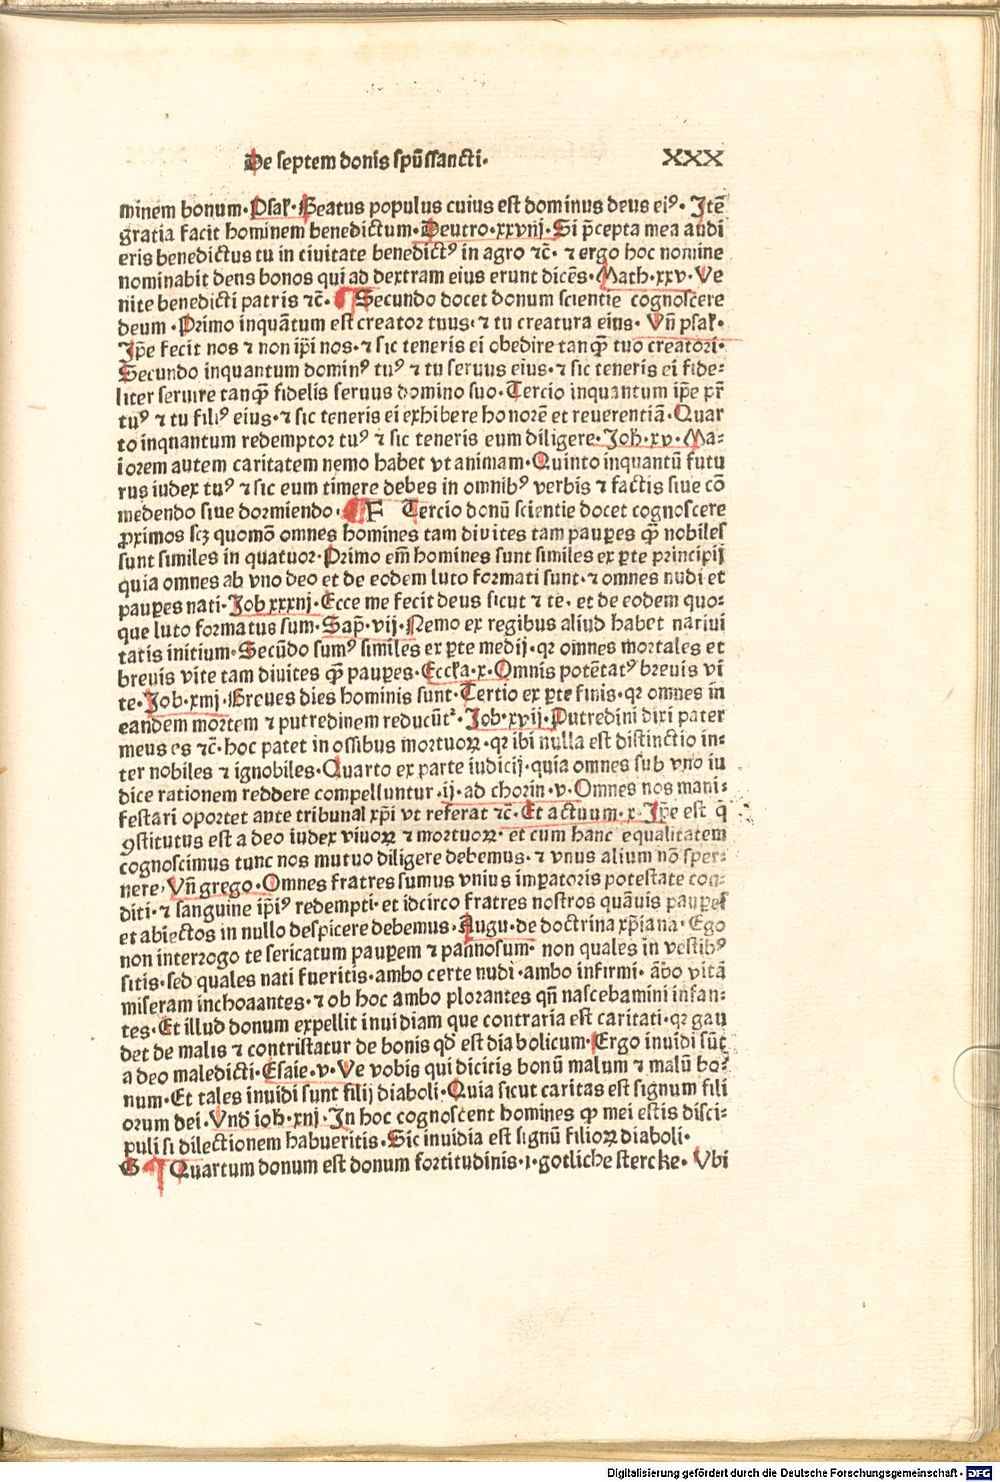 De septem donis spūssancti. XXX
minem bonum. Psal̄. Beatus populus cuius est dominus deus eiꝰ. Itē
gratia facit hominem benedictum. Deutro. xxviij. Si p̄cepta mea audi
eris benedictus tu in ciuitate benedictꝰ in agro ⁊c̄. ⁊ ergo hoc nomine
nominabit deus bonos qui ad dextram eius erunt dicēs. Math. xxv. Ve
nite benedicti patris ⁊c̄. ¶ Secundo docet donum scientie cognoscere
deum. Primo inquātum est creator tuus. ⁊ tu creatura eius. Vn̄ psal̄.
Ip̄e fecit nos ⁊ non ip̄i nos. ⁊ sic teneris ei obedire tanꝙ̄ tuo creatori.
Secundo inquantum dominꝰ tuꝰ ⁊ tu seruus eius. ⁊ sic teneris ei fide⸗
liter seruire tanꝙ̄ fidelis seruus domino suo. Tercio inquantum ip̄e pr̄
tuꝰ ⁊ tu filiꝰ eius. ⁊ sic teneris ei exhibere honorē et reuerentiā. Quar
to inquantum redemptor tuꝰ ⁊ sic teneris eum diligere. Joh̄. xv. Ma⸗
iorem autem caritatem nemo habet vt animam. Quinto inquantū futu
rus iudex tuꝰ ⁊ sic eum timere debes in omnibꝰ verbis ⁊ factis siue cō
medendo siue dormiendo. ¶ F Tercio donū scientie docet cognoscere
ꝓximos scꝫ quomō omnes homines tam diuites tam pauꝑes ꝙ̄ nobiles
sunt similes in quatuor. Primo em̄ homines sunt similes ex ꝑte principij
quia omnes ab vno deo et de eodem luto formati sunt. ⁊ omnes nudi et
pauꝑes nati. Job xxxiij. Ecce me fecit deus sicut ⁊ te. et de eodem quo⸗
que luto formatus sum. Sap̄. vij. Nemo ex regibus aliud habet natiui
tatis initium. Secūdo sumꝰ similes ex ꝑte medij. qr omnes mortales et
breuis vite tam diuites ꝙ̄ pauꝑes. Eccl̄a. x. Omnis potētatꝰ breuis vi
te. Job. xiiij. Breues dies hominis sunt. Tertio ex ꝑte finis. qr omnes in
eandem mortem ⁊ putredinem reducūt᷑. Job. xvij. Putredini dixi pater
meus es ⁊c̄. hoc patet in ossibus mortuoꝝ. qr ibi nulla est distinctio in⸗
ter nobiles ⁊ ignobiles. Quarto ex parte iudicij. quia omnes sub vno iu
dice rationem reddere compelluntur. ij. ad chorin. v. Omnes nos mani⸗
festari oportet ante tribunal xp̄i vt referat ⁊c̄. Et actuum. x. Ip̄e est q̄
ꝯstitutus est a deo iudex viuoꝝ ⁊ mortuoꝝ. et cum hanc equalitatem
cognoscimus tunc nos mutuo diligere debemus. ⁊ vnus alium nō sper⸗
nere, Vn̄ grego. Omnes fratres sumus vnius imꝑatoris potestate con⸗
diti. ⁊ sanguine ip̄iꝰ redempti. et idcirco fratres nostros quāuis pauꝑes
et abiectos in nullo despicere debemus. Augu. de doctrina xp̄iana. Ego
non interrogo te sericatum pauꝑem ⁊ pannosum. non quales in vestibꝰ
sitis. sed quales nati fueritis. ambo certe nudi. ambo infirmi. ābo vitā
miseram inchoantes. ⁊ ob hoc ambo plorantes qn̄ nascebamini infan⸗
tes. Et illud donum expellit inuidiam que contraria est caritati. qr gau
det de malis ⁊ contristatur de bonis qd̄ est diabolicum. Ergo inuidi sūt
a deo maledicti. Esaie. v. Ve vobis qui dicitis bonū malum ⁊ malū bo⸗
num. Et tales inuidi sunt filij diaboli. Quia sicut caritas est signum fili
orum dei. Vnd̄ ioh. xiij. In hoc cognoscent homines ꝙ mei estis disci⸗
puli si dilectionem habueritis. Sic inuidia est signū filioꝝ diaboli.
G ¶ Quartum donum est donum fortitudinis. i. gotliche stercke. Vbi
Digitalisierung gefördert durch die Deutsche Forschungsgemeinschaft - DFG